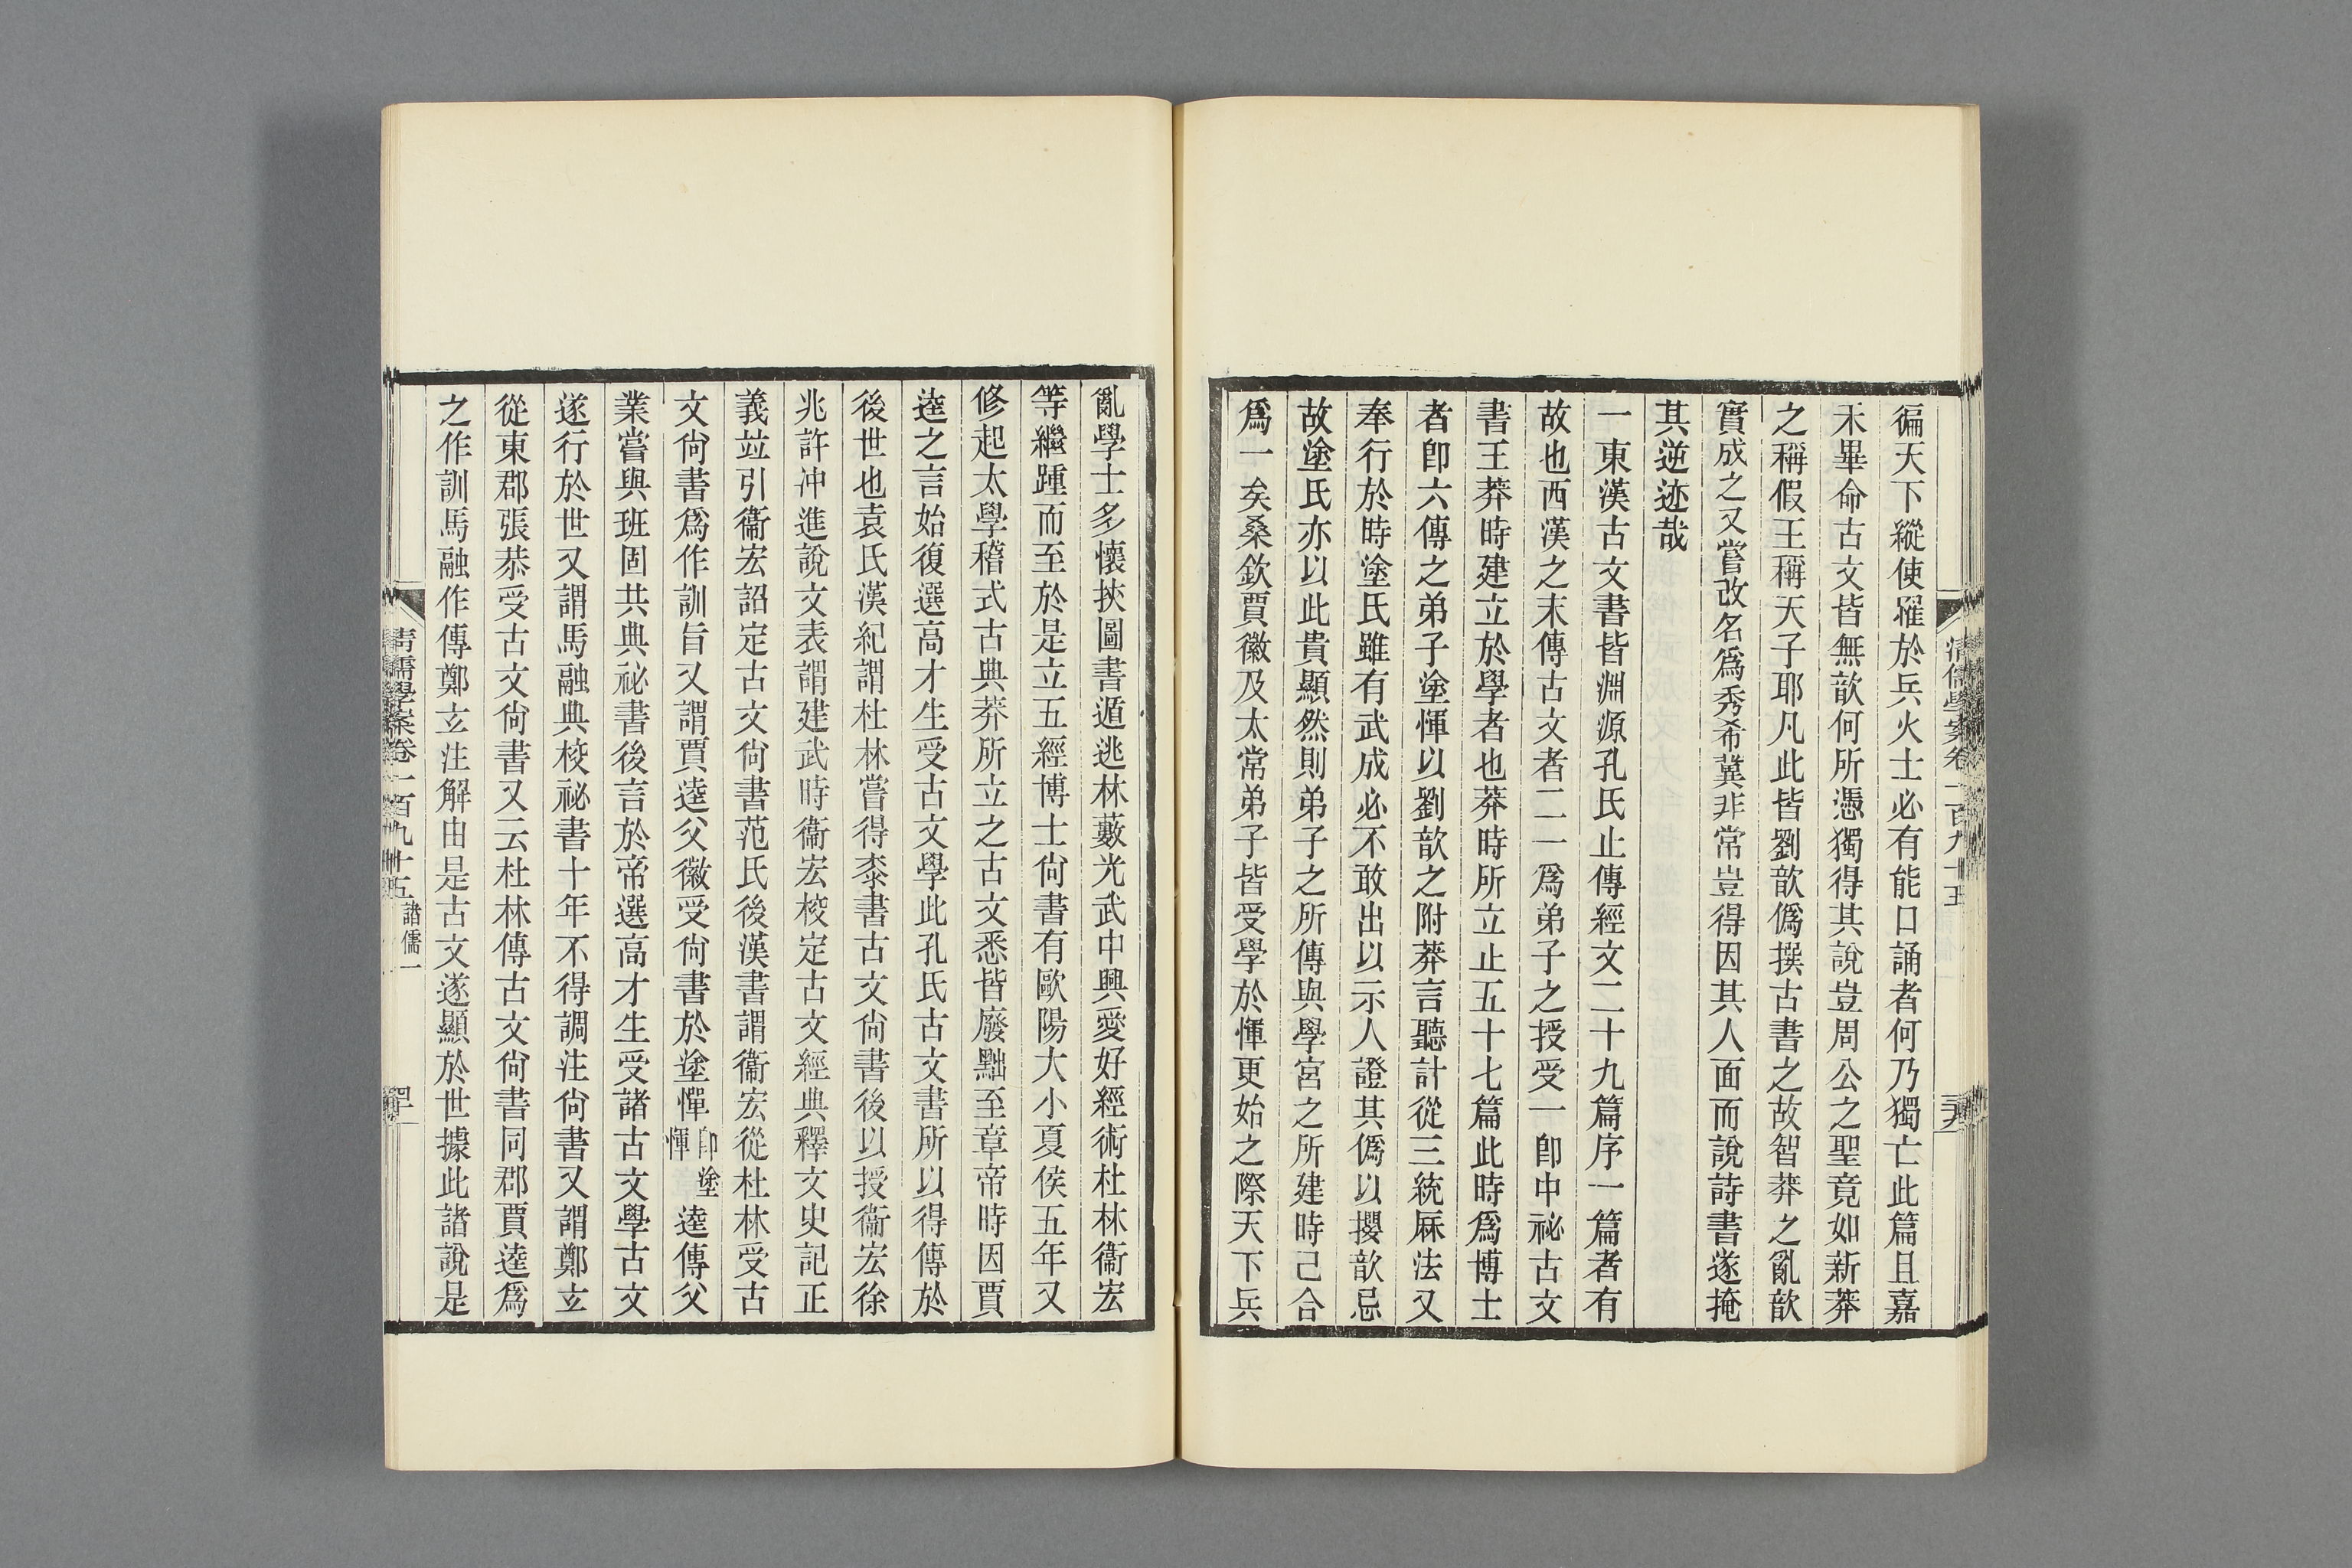 徧天下縱使罹於兵火士必有能口誦者何乃獨亡此篇且嘉
禾畢命古文皆無歆何所憑獨得其說豈周公之聖竟如新莽
之稱假王稱天子耶凡此皆劉歆僞撰古書之故智莽之亂歆
實成之又嘗改名爲秀希冀非常豈得因其人面而說詩書遂掩
其逆迹哉
一東漢古文書皆淵源孔氏止傳經文二十九篇序一篇者有
故也西漢之末傳古文者二一爲弟子之授受一卽中祕古文
書王莽時建立於學者也莽時所立止五十七篇此時爲博士
者卽六傳之弟子塗惲以劉歆之附莽言聽計從三統厤法又
奉行於時塗氏雖有武成必不敢出以示人證其僞以攖歆忌
故塗氏亦以此貴顯然則弟子之所傳與學宮之所建時己合
爲一矣桑欽賈徽及太常弟子皆受學於惲更始之際天下兵
亂學士多懷挾圖書遁逃林藪光武中興愛好經術杜林衞宏
等繼踵而至於是立五經博士尙書有歐陽大小夏侯五年又
修起太學稽式古典莽所立之古文悉皆廢黜至章帝時因賈
逵之言始復選高才生受古文學此孔氏古文書所以得傳於
後世也袁氏漢紀謂杜林嘗得桼書古文尙書後以授衞宏徐
兆許沖進說文表謂建武時衞宏校定古文經典釋文史記正
義竝引衞宏詔定古文尙書范氏後漢書謂衞宏從杜林受古
文尙書爲作訓旨又謂賈逵父徽受尙書於塗憚卽塗惲逵傳父
業嘗與班固共典祕書後言於帝選高才生受諸古文學古文
遂行於世又謂馬融典校祕書十年不得調注尙書又謂鄭玄
從東郡張恭受古文尙書又云杜林傳古文尙書同郡賈逵爲
之作訓馬融作傳鄭玄注解由是古文遂顯於世據此諸說是
清儒學案卷一百九十五 諸儒一